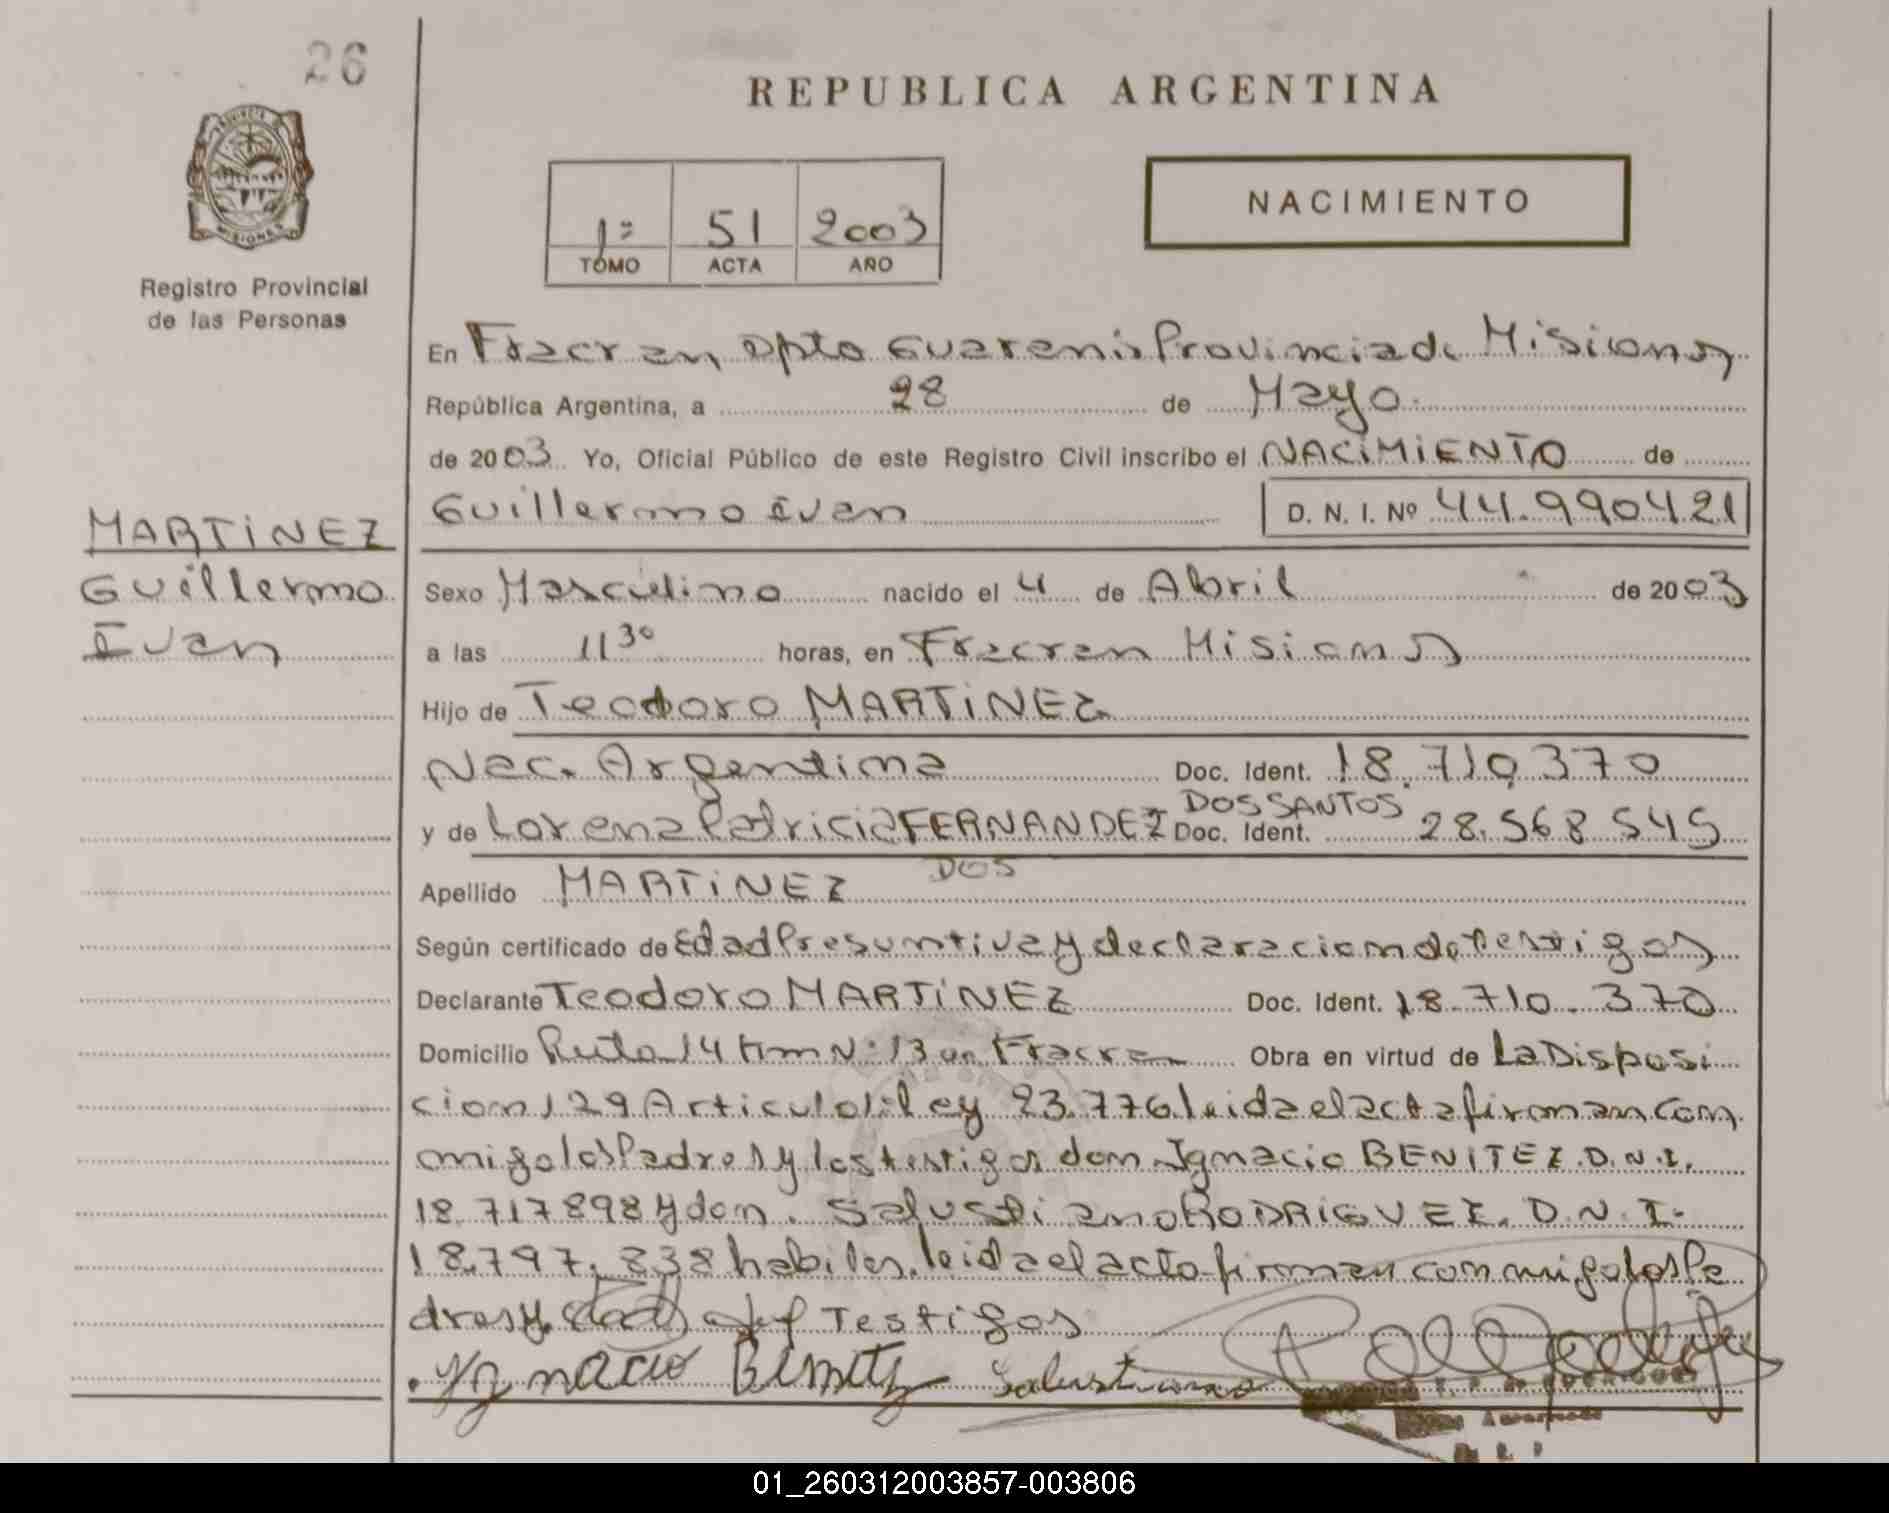 26
REPUBLICA ARGENTINA
PROVINCIA DE
MISIONES
Registro Provincial
de las Personas
1º 51 2003
TOMO ACTA AÑO
NACIMIENTO
En Fracran Dpto Guarani Provincia de Misiones
República Argentina, a 28 de Mayo
de 2003 Yo, Oficial Público de este Registro Civil inscribo el NACiMiENTO de
Guillermo Ivan D. N. I. Nº 44.990421
MARTiNEZ
Guillermo
Ivan
Sexo Masculino nacido el 4 de Abril de 2003
a las 11 30 horas, en Fracran Misiones
Hijo de Teodoro MARTiNEZ
Nac. Argentina Doc. Ident. 18.710.370
DOS SANTOS
y de Lorena Patricia FERNANDEZ Doc. Ident. 28.568 545
DOS
Apellido MARTiNEZ
Según certificado de Edad Presuntiva y declaracion de testigos
Declarante Teodoro MARTiNEZ Doc. Ident. 18.710.370
Domicilio Ruta 14 Km Nº 13 en Fracran Obra en virtud de La Disposi
cion 129 Articulo 1º Ley 23.776 leida el acta firman con
migo los Padres y los testigos don Ignacio BENITEZ D.N.I.
18.717898 y don. Salustiano RODRIGUEZ. D.N.I.
18.797.838 habiles. leida el acto firman con migo los Pa
dres y Testigos
Ygnacio Benitez Salustiano
01_260312003857-003806